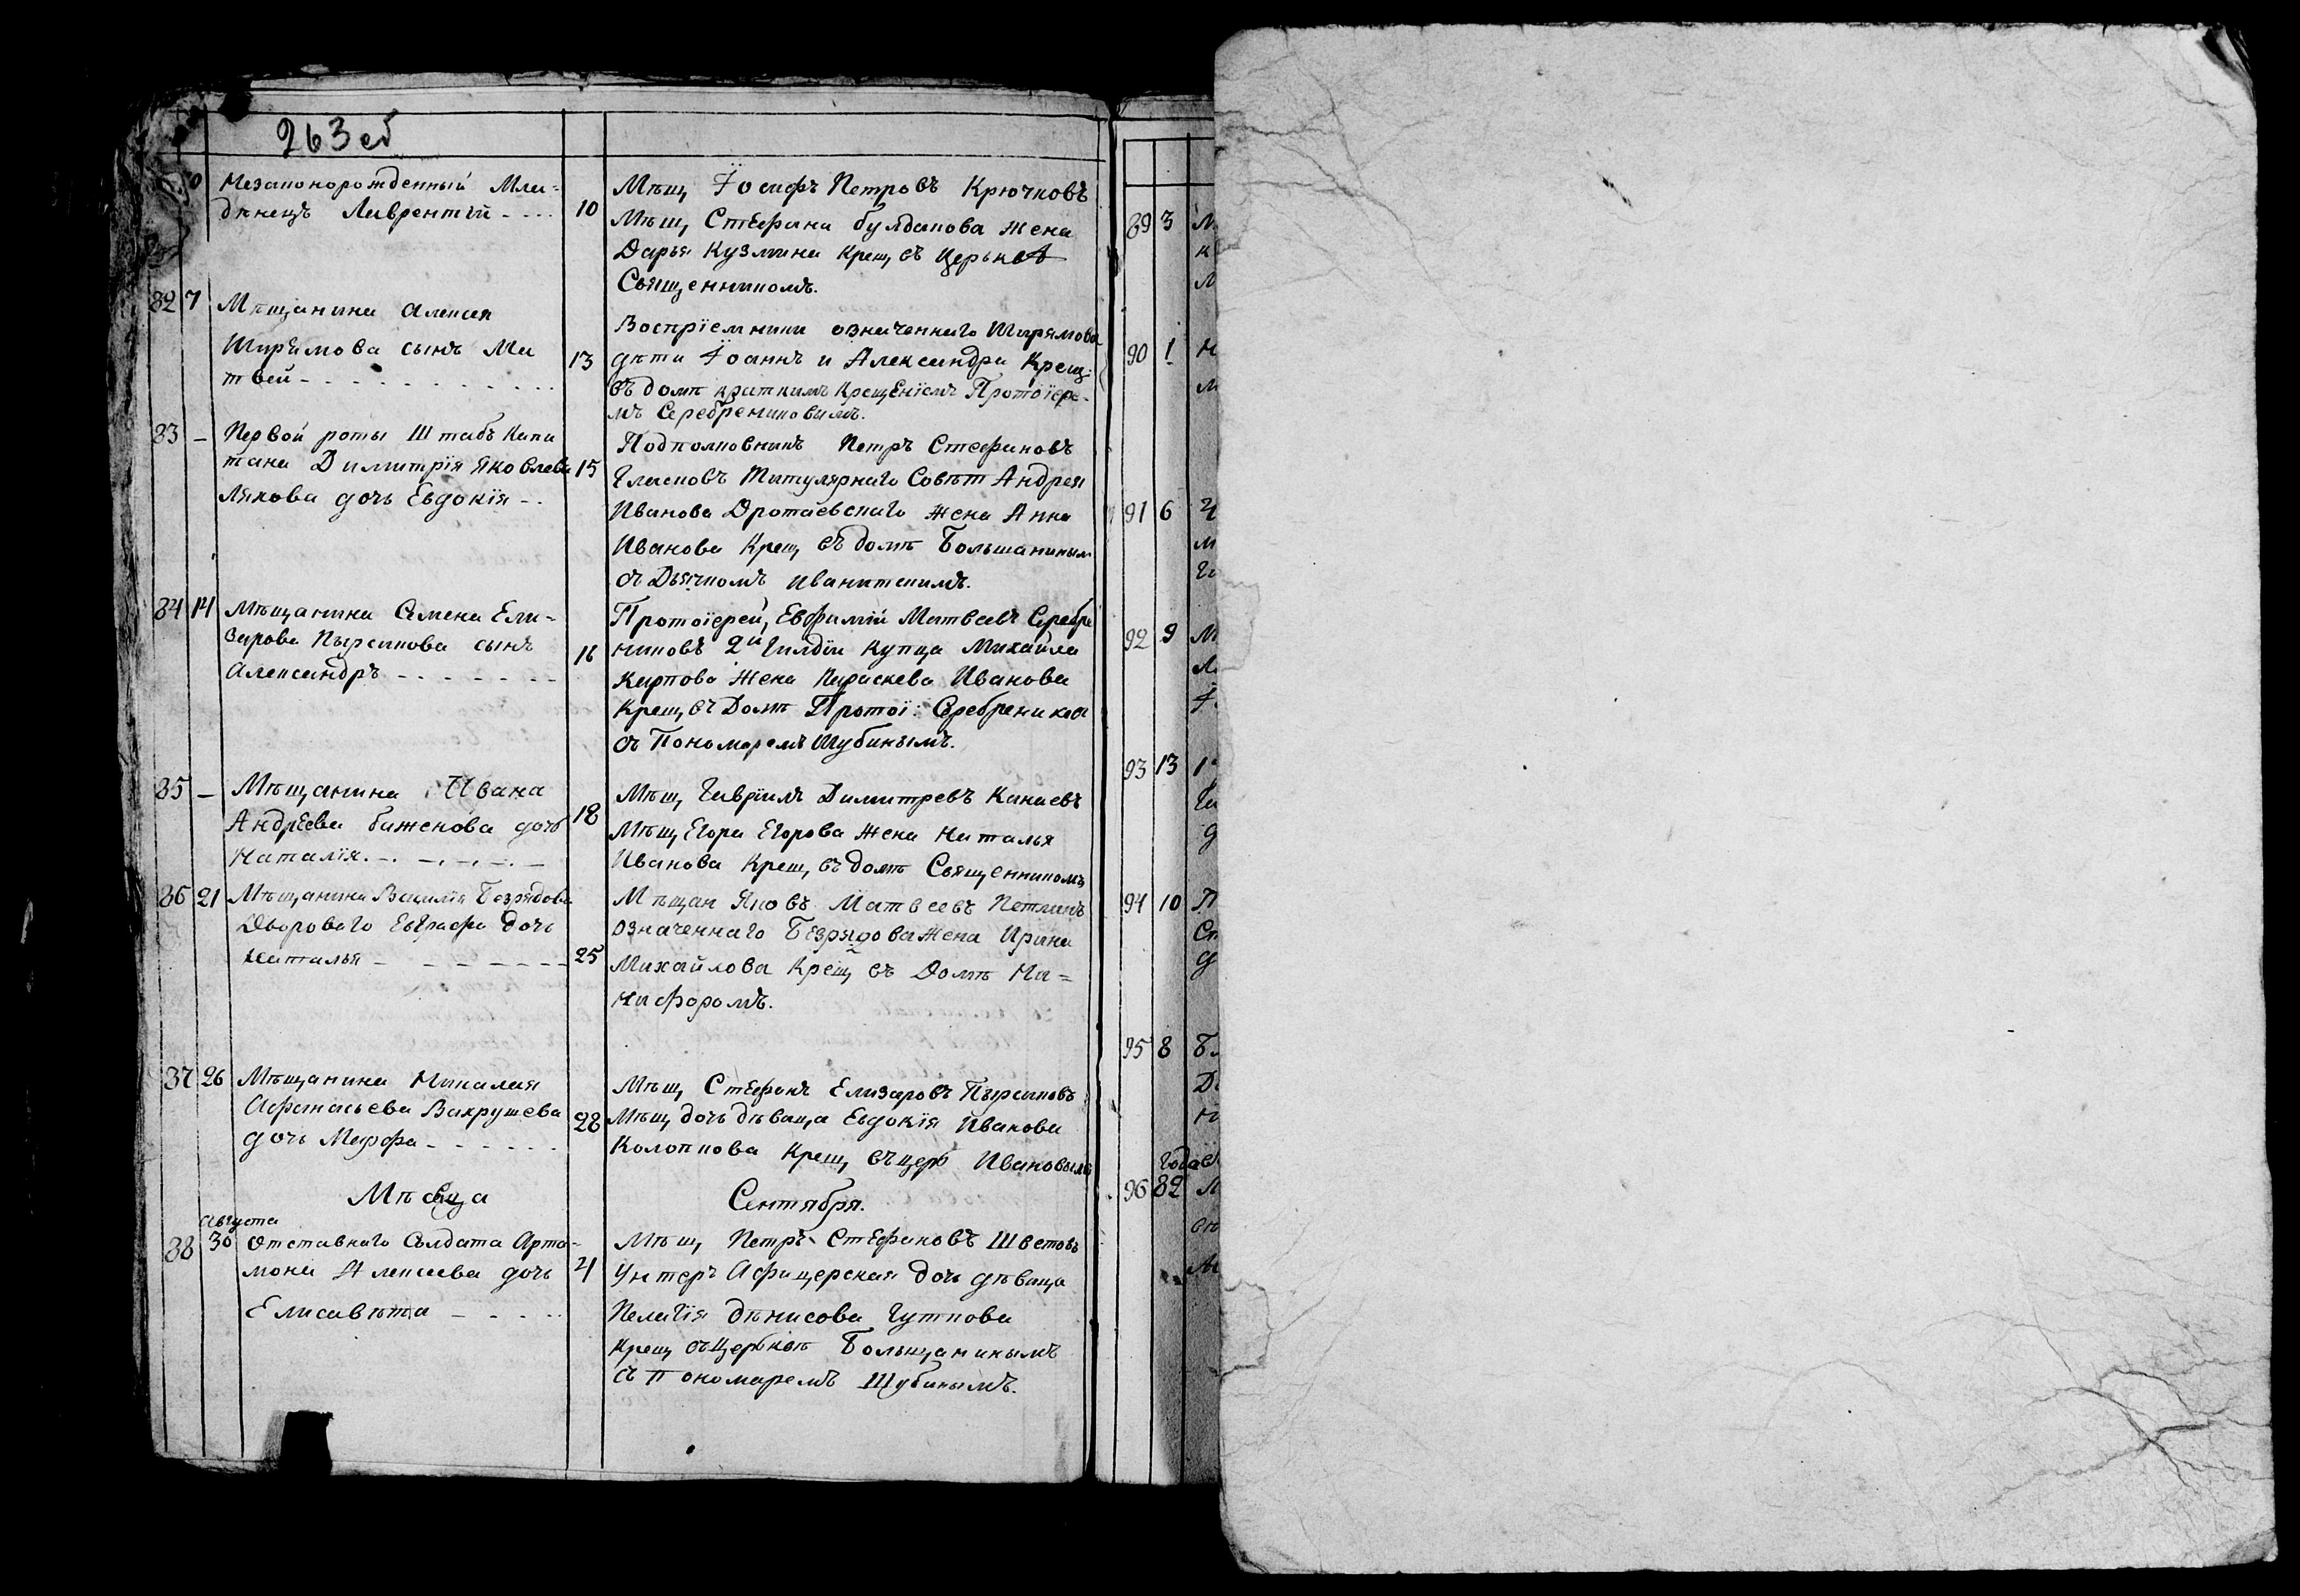 263 об
Незаконорожденный Мла-
дѣнецъ Лаврентий
10
Мѣщ, Іосифъ Петровъ Крючковъ
Мѣщ, Стефана булдакова жена
Дарья Кузмина Крещ, въ церькве
Священникомъ.
82 7 Мѣщанина Алексея
Ширямова сынъ Ма
твей
13
Воспріемники означеннаго Ширямова
дѣти Іоаннъ и Александра Крещ:
въ домѣ краткимъ крещеніемъ Протоіере-
мъ Серебрениковымъ.
83 — Первой роты Штабъ Капи
тана Димитрія Яковлева
Ляхова дочь Евдокія
15
Подполковникъ Петръ Стефановъ
Титулярнаго Совѣт Андрея
Иванова жена Анна
Иванова Крещ, въ домѣ Большаниным
съ Дьячкомъ Иванитскимъ.
84 14 Мѣщанина Семена Ели-
зарова Пырсикова сынъ
Александръ
16
Протоіерей, Евфимій Матвеевъ Серебре
никовъ 2й Гилдіи купца Михайла
Карпова жена Параскева Иванова
Крещ, въ Домѣ Протоі: Серебреникова
съ Пономаремъ Шубинымъ.
85 — Мѣщанина Ивана
Андреева баженова дочь
Наталія.
18
Мѣщ, Гавріилъ Димитревъ Канаевъ
Мѣщ, Егора Егорова жена Наталья
Иванова Крещ, въ домѣ Священникомъ
86 21 Мѣщанина Василія Безрядова
Двороваго Евграфа дочь
Наталья
25
Мѣщан Яковъ Матвеевъ Петлинъ
означеннаго Безрядова жена Ирина
Михайлова Крещ, въ Домѣ Ни-
кифоромъ.
87 26 Мѣщанина Николая
Афанасьева Вахрушева
дочь Марфа
28
Мѣщ, Стефанъ Елизаровъ Пырсиковъ
Мѣщ, дочь дѣвица Евдокія Иванова
Колопкова Крещ, въ церь Ивановымъ
Мѣсяца Сентября.
Августа
88 30 Отставнаго Солдата Арта-
мона Алексеева дочь
Елисавѣта
4
Мѣщ, Петръ Стефановъ Шветовъ
Унтеръ Афицерская дочь дѣвица
Пелагія дѣнисова Гуткова
Крещ, въ Церквѣ Большанинымъ
съ Пономаремъ Шубинымъ.
89 3
90 1
91 6
92 9
93 13
94 10
95 8
Года
96 82